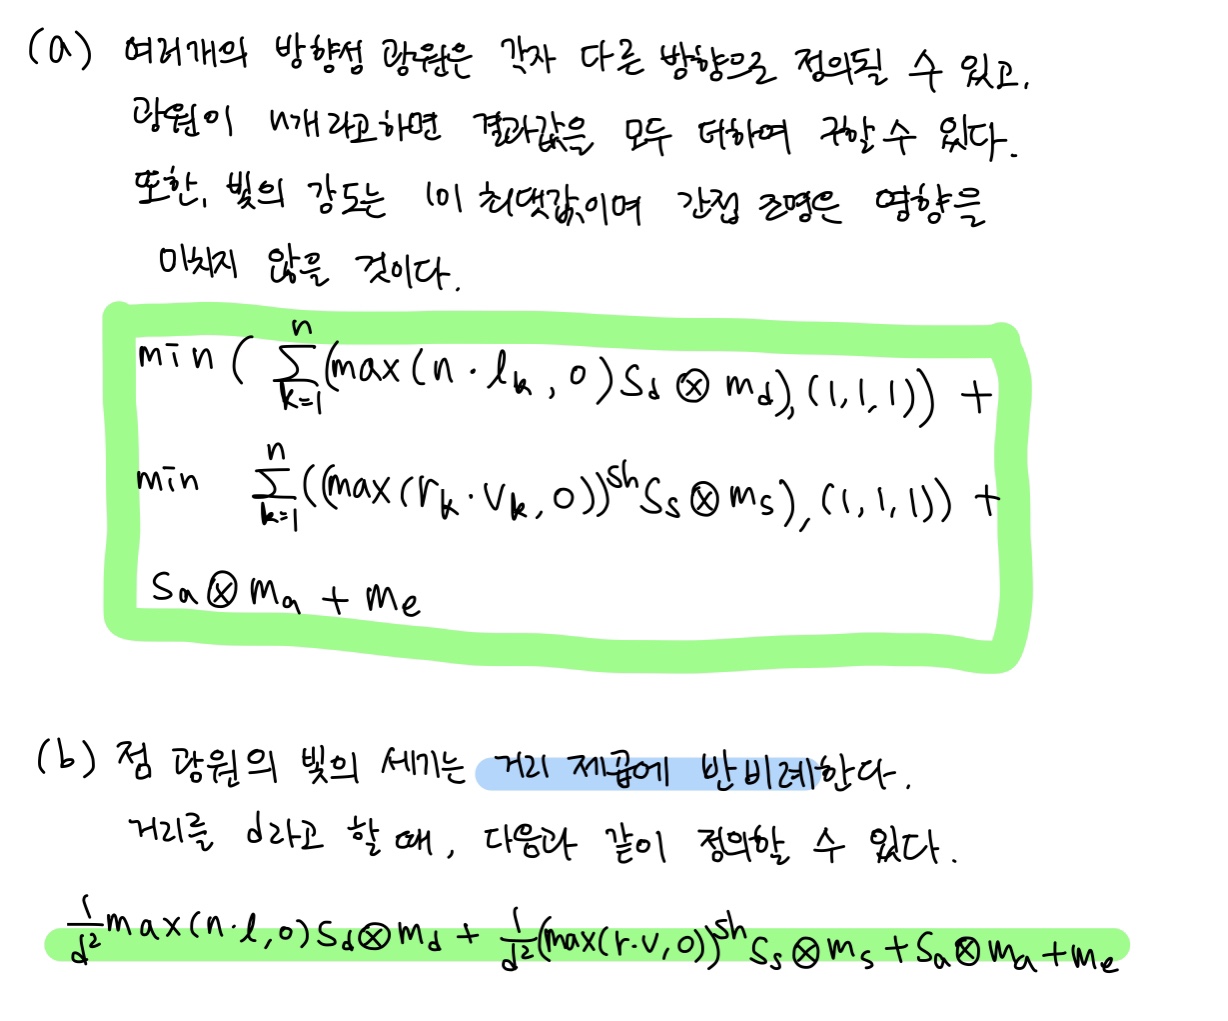 (a) 여러개의 방향성 광원은 각자 다른 방향으로 정의될 수 있고,
광원이 n개라고하면 결과값을 모두 더하여 구할 수 있다.
또한, 빛의 강도는 1이 최댓값이며 간접 조명은 영향을
미치지 않을 것이다.
min ( Σ_{k=1}^{n} (max(n·l_k, 0) S_d ⊗ m_d), (1,1,1)) +
min Σ_{k=1}^{n} ((max(r_k·v_k, 0))^{sh} S_s ⊗ m_s), (1,1,1)) +
S_a ⊗ m_a + m_e
(b) 점 광원의 빛의 세기는 거리 제곱에 반비례한다.
거리를 d라고 할 때, 다음과 같이 정의할 수 있다.
1/d² max(n·l, 0) S_d ⊗ m_d + 1/d² (max(r·v, 0))^{sh} S_s ⊗ m_s + S_a ⊗ m_a + m_e